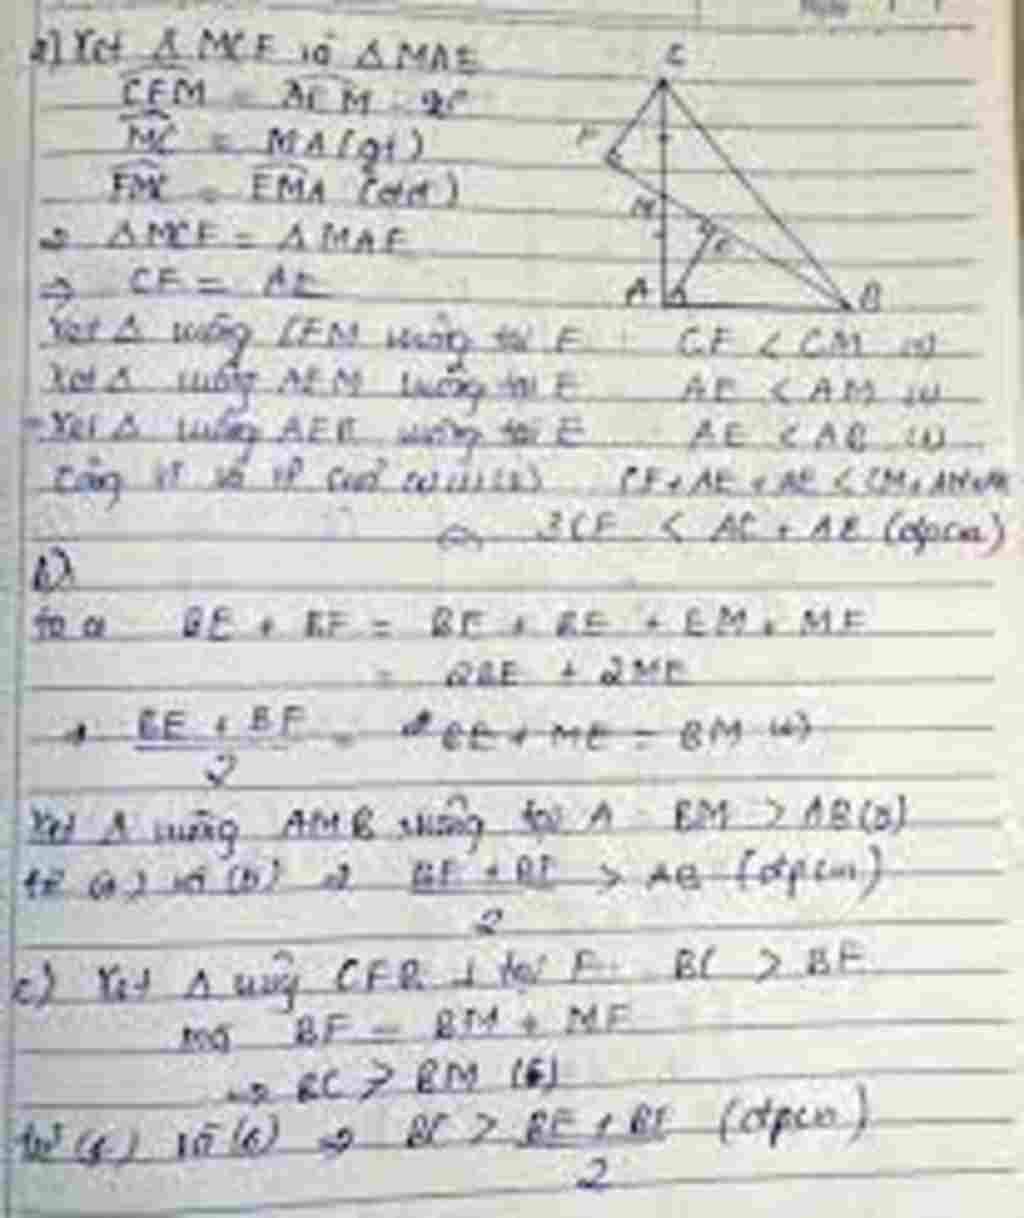 a) Xét Δ MCF và Δ MAE
CFM = AEM = 90
MC = MA (gt)
FMC = EMA (đđ)
=> Δ MCF = Δ MAE
=> CF = AE
Xét Δ vuông CFM vuông tại F : CF < CM (1)
Xét Δ vuông AEM vuông tại E AE < AM
Xét Δ vuông AEB vuông tại E AE < AB
Cộng vế và vế của CF + AE + AE < CM + AM + AB
3CF < AC + AB (đpcm)
b)
ta có BE + BF = BE + BE + EM + MF
= 2BE + 2ME
BE + BF
2
= BE + ME = BM
Xét Δ vuông AMB vuông tại A BM > AB
từ và => BE + BF > AB (đpcm)
2
c) Xét Δ vuông CFB ⊥ tại F: BC > BF
mà BF = BM + MF
=> BC > BM (6)
từ và (6) => BC > BE + BF (đpcm)
2
C
F
M
E
A
B